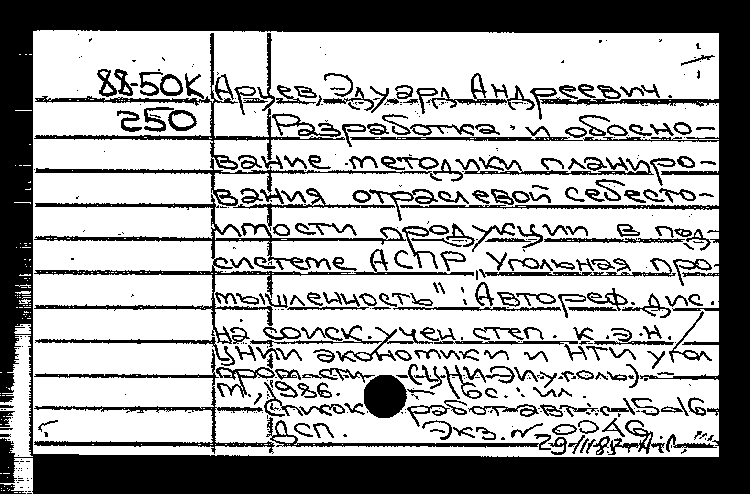 88-50К Арцев, Эдуард Андреевич.
250 Разработка и обосно-
вание методики планиро-
вания отраслевой себесто-
имости продукции в под-
системе АСПР "Угольная про-
мышленность" : Автореф. дис.
на соиск. учен. степ. к.э.н. /
ЦНИИ экономики и НТИ угол
пром-сти (ЦНИЭИуголь). -
М., 1986. - 16с. : ил.
Список работ авт.: с. 15-16
ДСП. Экз. №0046